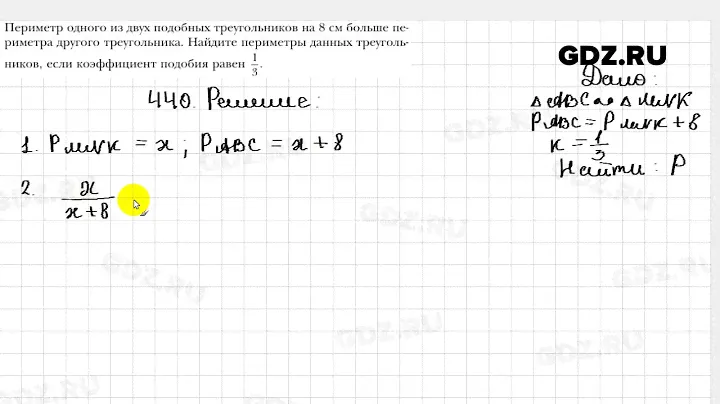 Периметр одного из двух подобных треугольников на 8 см больше пе-
риметра другого треугольника. Найдите периметры данных треуголь-
ников, если коэффициент подобия равен 1/3.
GDZ.RU
Дано:
△ABC ∾ △MNK
P ABC = P MNK + 8
к = 1/3
Найти: P
440. Решение:
1. P MNK = x ; P ABC = x + 8
2. x/(x+8)